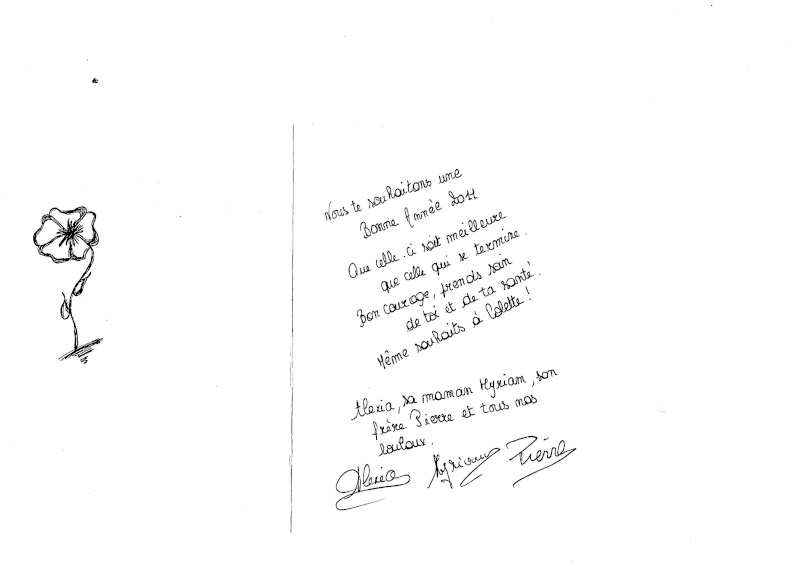 Nous te souhaitons une
Bonne Année 2011
Que celle-ci soit meilleure
que celle qui se termine.
Bon courage, prends soin
de toi et de ta santé.
Même souhaits à Colette !
Alexia, sa maman Myriam, son
frère Pierre et tous nos
loulous.
Alexia Myriam Pierre